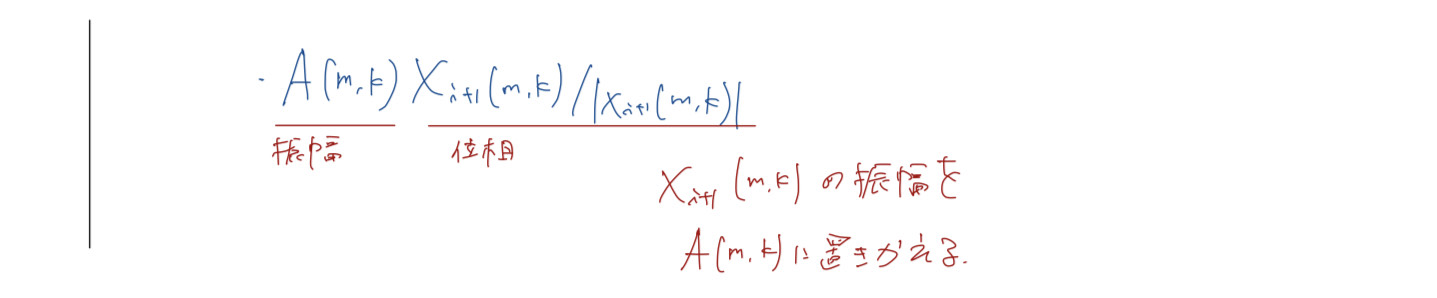 ・A(m,k) X_{i+1}(m,k)/|X_{i+1}(m,k)|
振幅 位相
X_{i+1}(m,k)の振幅を
A(m,k)に置きかえる.